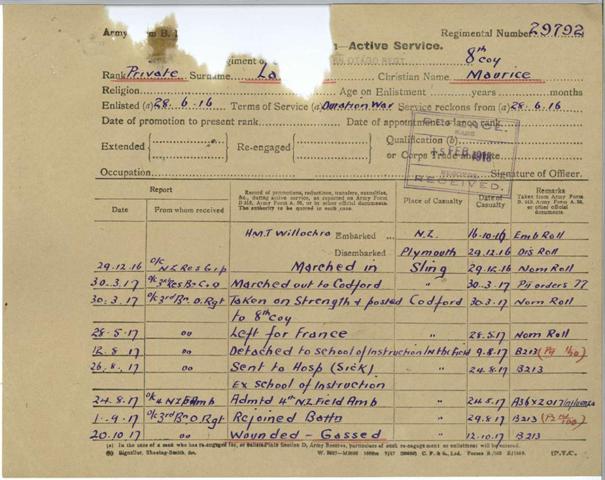 Army Form B.
Regimental Number 29792
—Active Service.
giment of OTAGO REGT. 8th Coy
Rank Private Surname La Christian Name Maurice
Religion Age on Enlistment years months
Enlisted (a) 28.6.16 Terms of Service (a) Duration War Service reckons from (a) 28.6.16
Date of promotion to present rank Date of appointment to lance rank
Extended Re-engaged Qualification (b)
or Corps Trade and Rate
5 FEB 1918
RECEIVED.
Occupation Signature of Officer.
Report
Date From whom received
Record of promotions, reductions, transfers, casualties, &c., during active service, as reported on Army Form B.213, Army Form A. 36, or in other official documents. The authority to be quoted in each case.
Place of Casualty
Date of Casualty
Remarks
Taken from Army Form B. 213, Army Form A. 36, or other official documents
H.M.T Willochra Embarked N.Z. 16.10.16 Emb Roll
Disembarked Plymouth 29.12.16 Dis Roll
29.12.16 O/c N.Z Res Grp Marched in Sling 29.12.16 Nom Roll
30.3.17 O/c 3rd Res Bn C.O Marched out to Codford " 30.3.17 Pt orders 77
30.3.17 O/c 3rd Bn O.Rgt Taken on Strength & posted Codford 30.3.17 Nom Roll
to 8th Coy
28.5.17 oo Left for France " 28.5.17 Nom Roll
12.8.17 oo Detached to school of Instruction In the Field 9.8.17 B213
26.8.17 oo Sent to Hosp (Sick) " 24.8.17 B213
Ex School of instruction
24.8.17 O/c 4 N.Z F Amb Admtd 4th N.Z Field Amb " 24.8.17 A36 x 2017 Influenza
1.9.17 O/c 3rd Bn O.Rgt Rejoined Battn " 29.8.17 B213
20.10.17 oo Wounded - Gassed " 12.10.17 B213
(a) In the case of a man who has re-engaged for, or enlisted into Section D, Army Reserve, particulars of such re-engagement or enlistment will be entered.
(b) Signaller, Shoeing-Smith, &c. [P.T.O.